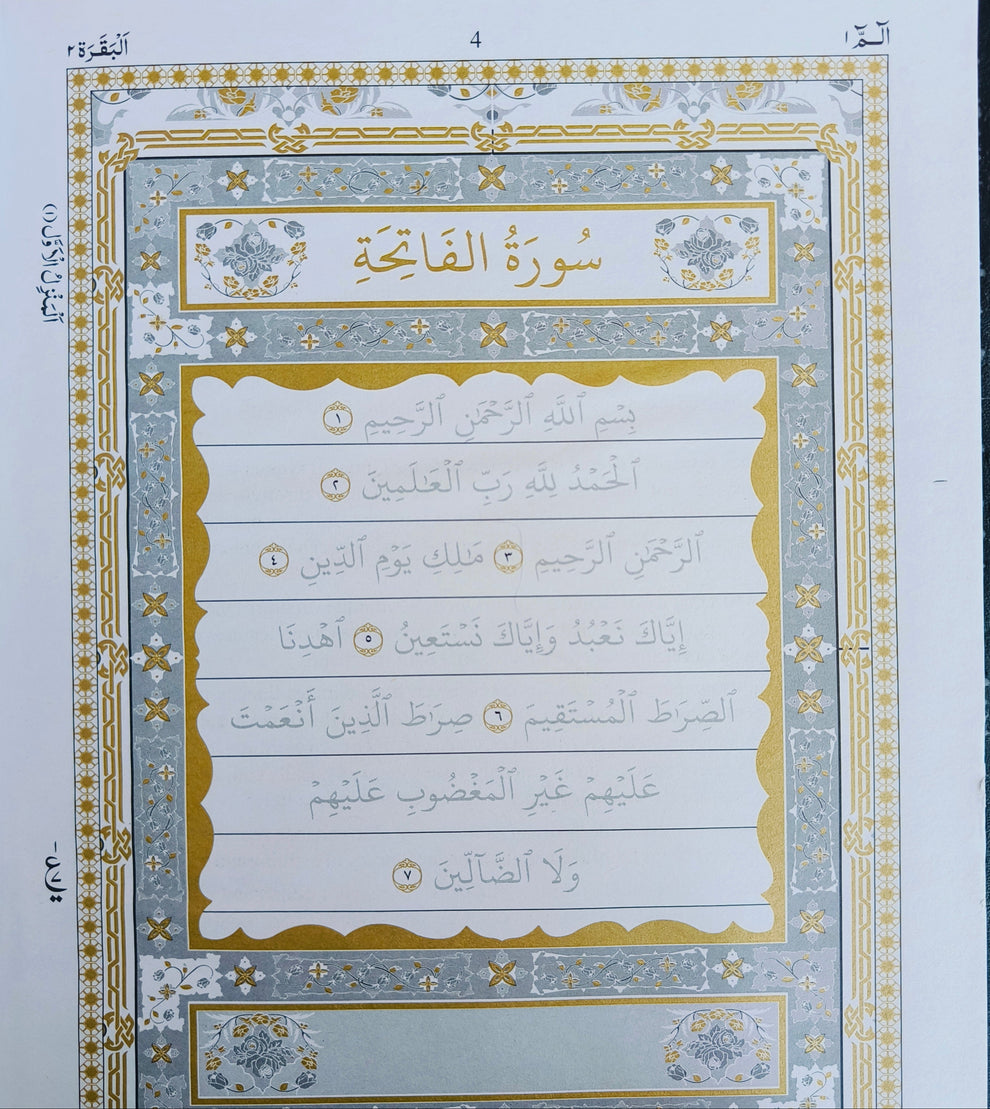 الٓـمّٓ ١
4
اَلْبَقَرَة ٢
سُورَةُ الفَاتِحَةِ
بِسۡمِ ٱللَّهِ ٱلرَّحۡمَٰنِ ٱلرَّحِيمِ ١
ٱلۡحَمۡدُ لِلَّهِ رَبِّ ٱلۡعَٰلَمِينَ ٢
ٱلرَّحۡمَٰنِ ٱلرَّحِيمِ ٣ مَٰلِكِ يَوۡمِ ٱلدِّينِ ٤
إِيَّاكَ نَعۡبُدُ وَإِيَّاكَ نَسۡتَعِينُ ٥ ٱهۡدِنَا
ٱلصِّرَٰطَ ٱلۡمُسۡتَقِيمَ ٦ صِرَٰطَ ٱلَّذِينَ أَنۡعَمۡتَ
عَلَيۡهِمۡ غَيۡرِ ٱلۡمَغۡضُوبِ عَلَيۡهِمۡ
وَلَا ٱلضَّآلِّينَ ٧
اَلْمَنْزِلُ الْاَوَّلُ (١)